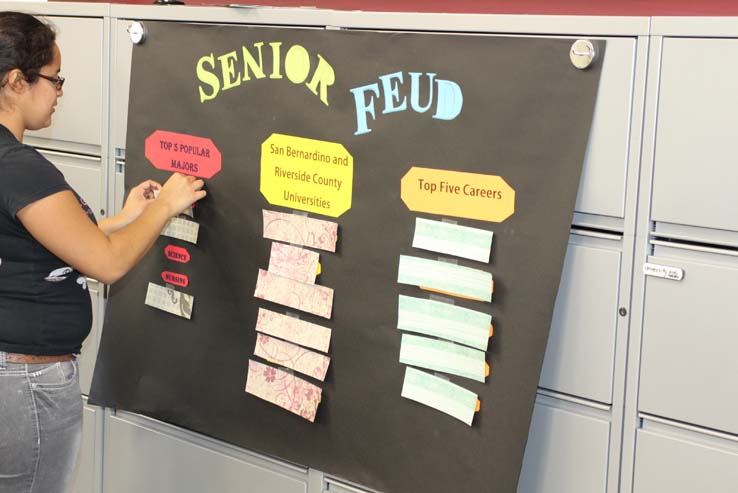 SENIOR
FEUD
TOP 5 POPULAR
MAJORS
SCIENCE
NURSING
San Bernardino and
Riverside County
Universities
Top Five Careers